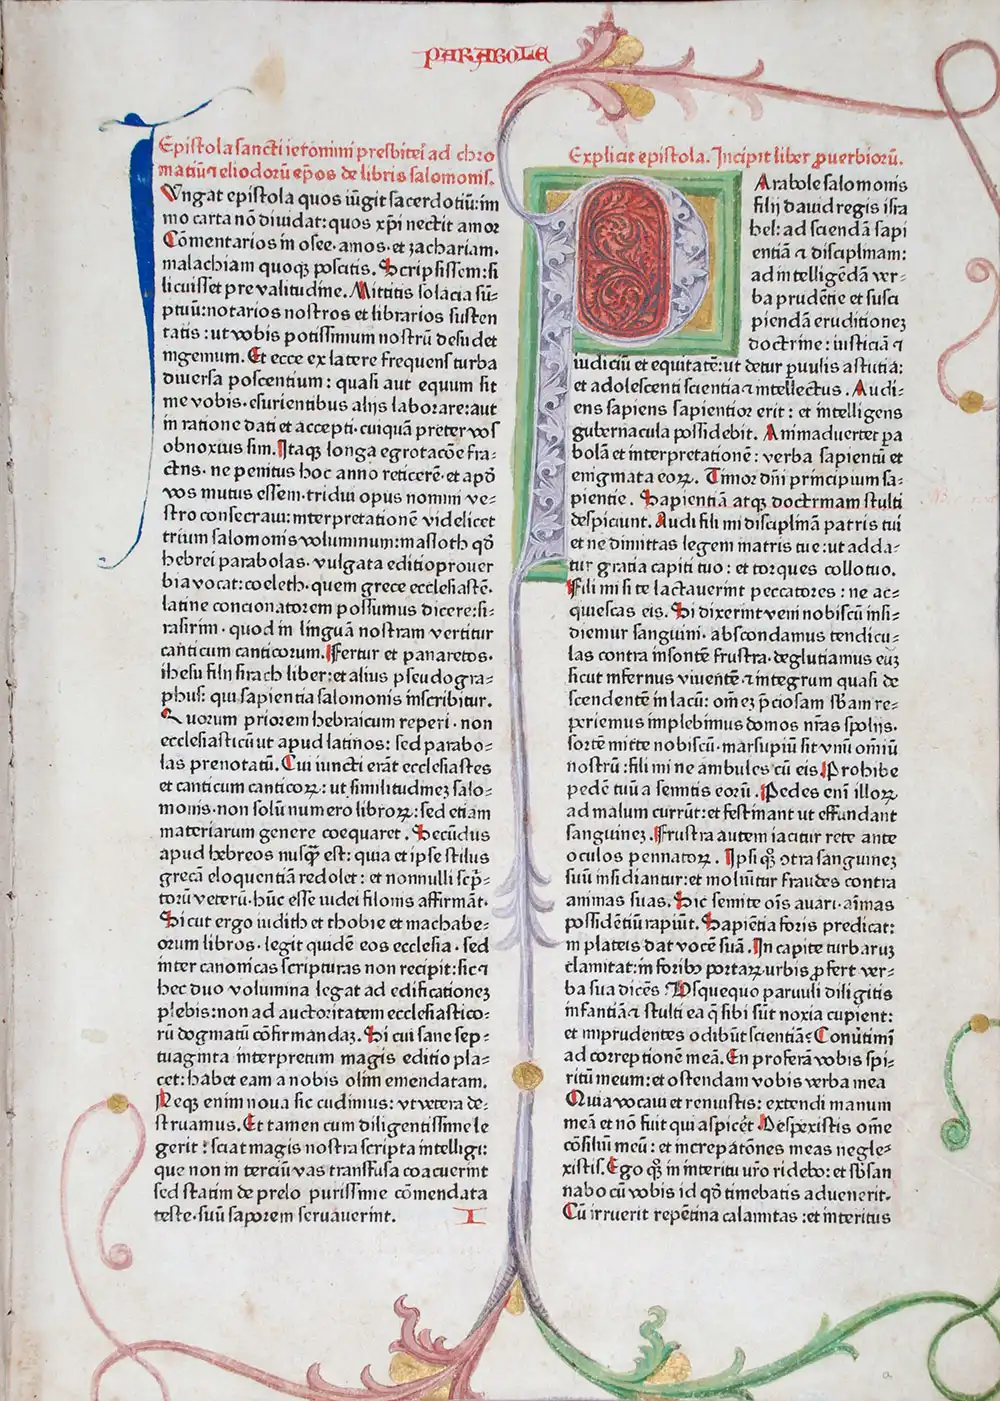 PARABOLE
Epistola sancti ieronimi presbiteri ad chro
matiũ ⁊ eliodorũ ep̃os de libris salomonis.
Vngat epistola quos iũgit sacerdotiũ: im
mo carta nõ diuidat: quos xp̃i nectit amor
Cõmentarios in osee. amos. et zachariam.
malachiam quoqꝫ poscitis. Scripsissem: si
licuisset pre valitudine. Mittitis solacia sũ⸗
ptuũ: notarios nostros et librarios susten
tatis: ut vobis potissimum nostrũ desudet
ingenium. Et ecce ex latere frequens turba
diuersa poscentium: quasi aut equum sit
me vobis. esurientibus alijs laborare: aut
in ratione dati et accepti. cuiquã preter vos
obnoxius sim. Itaqꝫ longa egrotacõe fra⸗
ctus. ne penitus hoc anno reticerẽ. et apd̃
vos mutus essem. tridui opus nomini ve⸗
stro consecraui: interpretationẽ videlicet
trium salomonis voluminum: masloth qd̃
hebrei parabolas. vulgata editio prouer
bia vocat: coeleth. quem grece ecclesiastẽ.
latine concionatorem possumus dicere: si⸗
rasirim. quod in linguã nostram vertitur
cañticum canticorum. Fertur et panaretos.
ihesu filij sirach liber: et alius pseudogra⸗
phus: qui sapientia salomonis inscribitur.
Quorum priorem hebraicum reperi. non
ecclesiasticũ ut apud latinos: sed parabo⸗
las prenotatũ. Cui iuncti erãt ecclesiastes
et canticum canticoꝝ: ut similitudineʒ salo⸗
monis. non solũ numero libroꝝ: sed etiam
materiarum genere coequaret. Secũdus
apud hebreos nusq̃ est: quia et ipse stilus
grecã eloquentiã redolet: et nonnulli scp̃⸗
torũ veterũ. hũc esse iudei filonis affirmãt.
Sicut ergo iudith et thobie et machabe⸗
orum libros. legit quidẽ eos ecclesia. sed
inter canonicas scripturas non recipit: sic ⁊
hec duo volumina legat ad edificationeʒ
plebis: non ad auctoritatem ecclesiastico⸗
rũ dogmatũ cõfirmandaʒ. Si cui sane sep⸗
tuaginta interpretum magis editio pla⸗
cet: habet eam a nobis olim emendatam.
Neqꝫ enim noua sic cudimus: vt vetera de⸗
struamus. Et tamen cum diligentissime le
gerit: sciat magis nostra scripta intelligi:
que non in terciũ vas transfusa coacuerint
sed statim de prelo purissime cõmendata
teste. suũ saporem seruauerint. I
Explicit epistola. Incipit liber ꝓuerbiorũ.
PArabole salomonis
filij dauid regis isra
hel: ad sciendã sapi
entiã ⁊ disciplinam:
ad intelligẽdã ver⸗
ba prudẽtie et susci
piendã eruditioneʒ
doctrine: iusticiã ⁊
iudiciũ et equitatẽ: ut detur ꝑuulis astutia:
et adolescenti scientia ⁊ intellectus. Audi⸗
ens sapiens sapientior erit: et intelligens
gubernacula possidebit. Animaduertet pa
bolã et interpretationẽ: verba sapientũ et
enigmata eoꝝ. Timor dñi principium sa⸗
pientie. Sapientiã atqꝫ doctrinam stulti
despiciunt. Audi fili mi disciplinã patris tui
et ne dimittas legem matris tue: ut adda⸗
tur gratia capiti tuo: et torques collo tuo.
Fili mi si te lactauerint peccatores: ne ac⸗
quiescas eis. Si dixerint veni nobiscũ insi⸗
diemur sanguini. abscondamus tendicu⸗
las contra insontẽ frustra. deglutiamus euʒ
sicut infernus viuentẽ ⁊ integrum quasi de
scendentẽ in lacũ: om̃eʒ p̃ciosam sb̃am re⸗
periemus implebimus domos nr̃as spolijs.
sortẽ mitte nobiscũ. marsupiũ sit vnũ om̃iũ
nostrũ: fili mi ne ambules cũ eis. Prohibe
pedẽ tuũ a semitis eorũ. Pedes eni illoꝝ
ad malum currũt: et festinant ut effundant
sanguineʒ. Frustra autem iacitur rete ante
oculos pennatoꝝ. Ipsi qʒ ɔtra sanguineʒ
suũ insidiantur: et moliũtur fraudes contra
animas suas. Sic semite oĩs auari. aĩmas
possidẽtiũ rapiũt. Sapiẽtia foris predicat:
in plateis dat vocẽ suã. In capite turbaruʒ
clamitat: in foribꝰ portaꝝ urbis ꝓfert ver⸗
ba sua dicẽs: Vsquequo paruuli diligitis
infantiã ⁊ stulti ea q̃ sibi sũt noxia cupient:
et imprudentes odibũt scientiã: Conũtimĩ
ad correptionẽ meã. En proferã vobis spi⸗
ritũ meum: et ostendam vobis verba mea
Quia vocaui et renuistis: extendi manum
meã et nõ fuit qui aspicẽt. Despexistis om̃e
cõsiliũ meũ: et increpatõnes meas negle⸗
xistis. Ego qʒ in interitu ur̃o ridebo: et sb̃san
nabo cũ vobis id qd̃ timebatis aduenerit.
Cũ irruerit repẽtina calamitas: et interitus